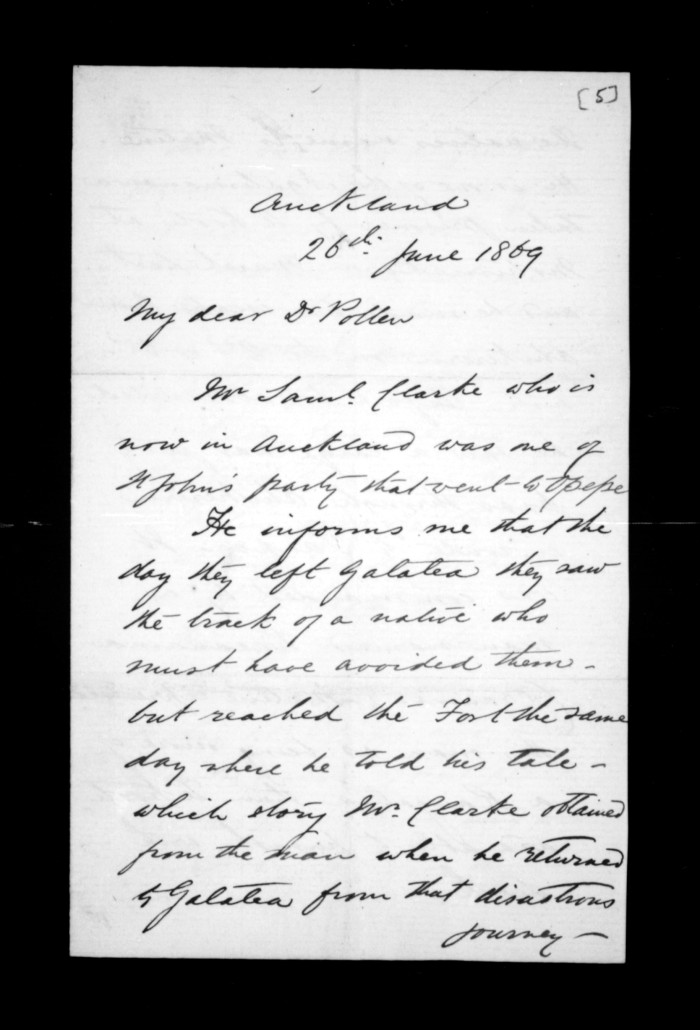 [5]
Auckland
26th June 1869
My dear Dr Pollen
Mr Saml. Clarke who is
now in Auckland was one of
St John's party that went to Opepe
He informs me that the
day they left Galatea they saw
the track of a native who
must have avoided them -
but reached the Fort the same
day where he told his tale -
which story Mr. Clarke obtained
from the man when he returned
to Galatea from that disastrous
journey -